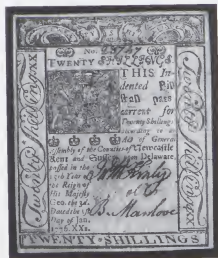 No.
TWENTY SHILLINGS
THIS In-
dented Bill
shall pass
current for
Twenty Shillings
according to an
Act of General
Assembly of the Counties of Newcastle
Kent and Sussex upon Delaware,
passed in the
15th Year of
the Reign of
His Majesty
Geo. the 3d.
Dated the 1st
Day of Jan.
1776.
B. Manlove
TWENTY SHILLINGS